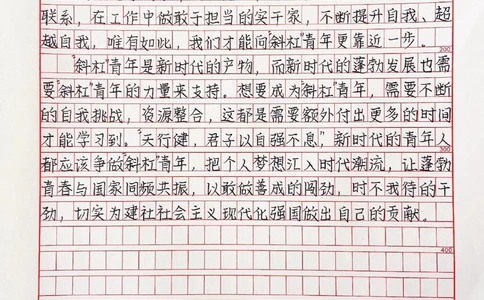 联系，在工作中做敢于担当的实干家，不断提升自我、超
越自我，唯有如此，我们才能向“斜杠”青年更靠近一步。
200
“斜杠”青年是新时代的产物，而新时代的蓬勃发展也需
要“斜杠”青年的力量来支持。想要成为“斜杠”青年，需要不断
的自我挑战，资源整合，这都是需要额外付出更多的时间
才能学习到。“天行健，君子以自强不息”，新时代的青年人
300
都应该争做“斜杠”青年，把个人梦想汇入时代潮流，让蓬勃
青春与国家同频共振，以敢做善成的闯劲，时不我待的干
劲，切实为建社社会主义现代化强国做出自己的贡献。
400